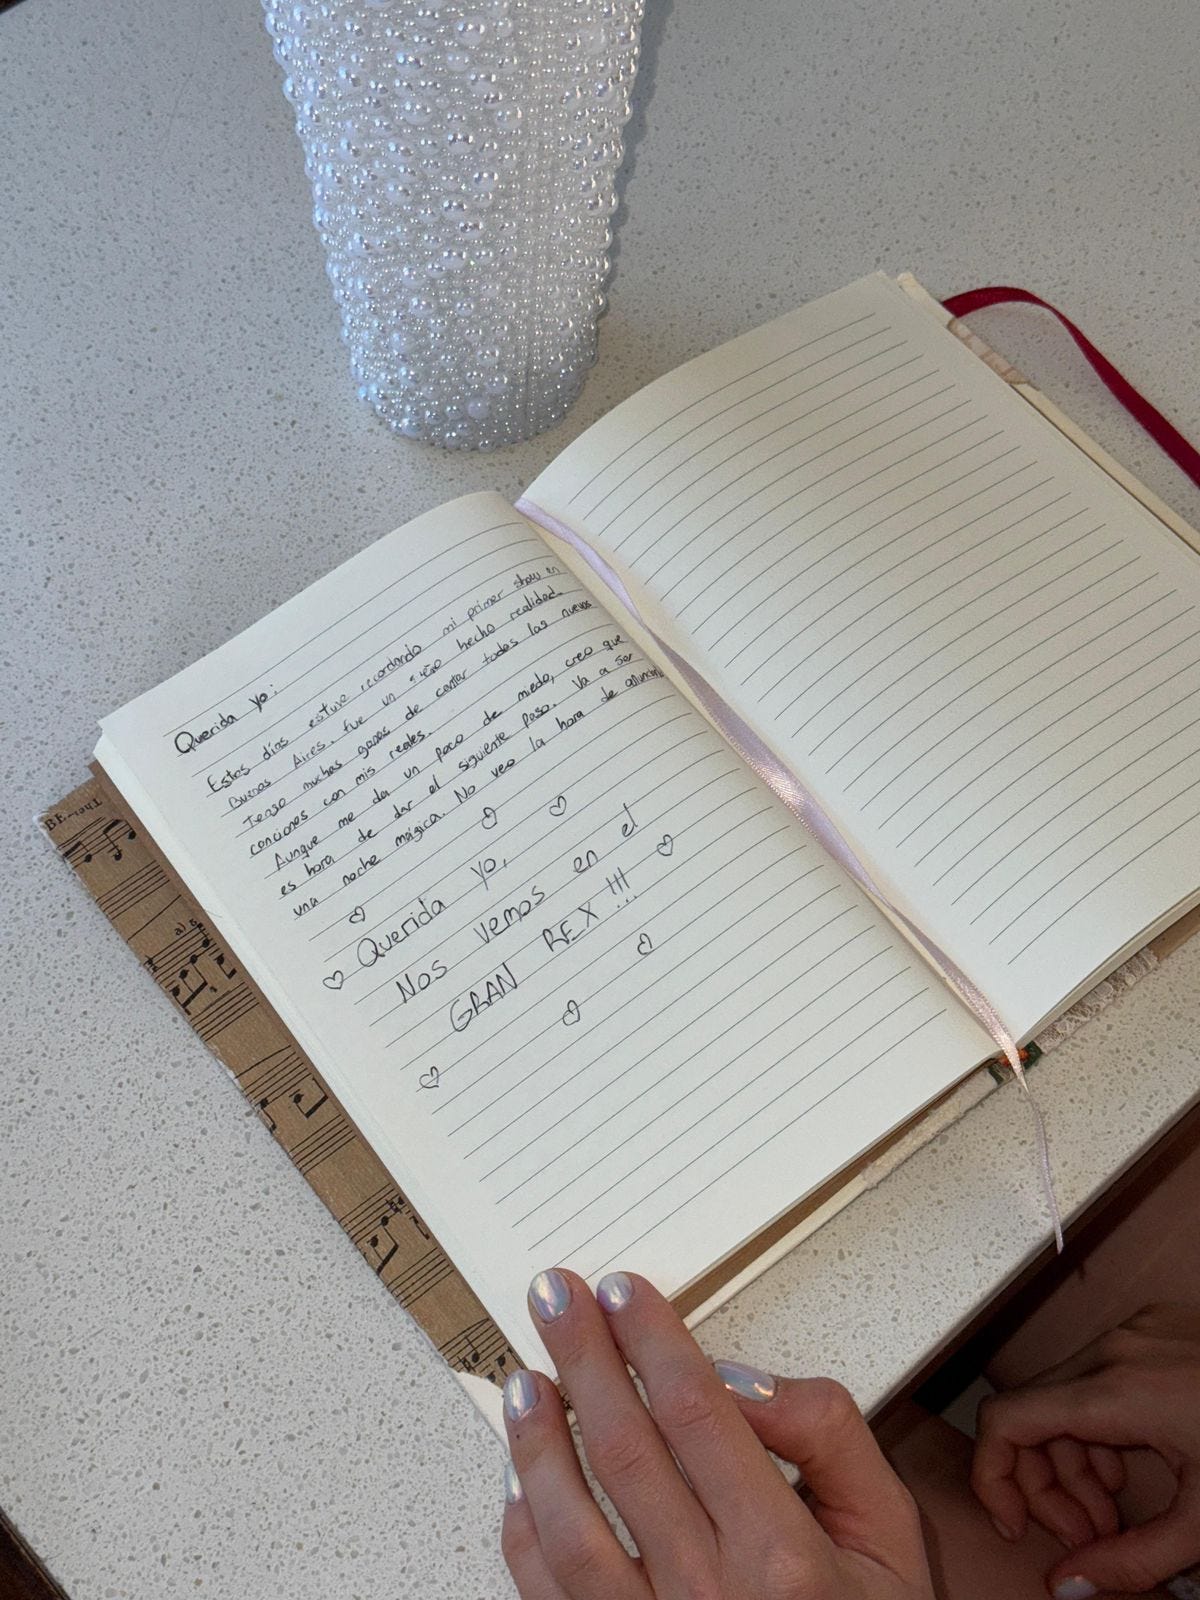 Querida yo:
Estos días estuve recordando mi primer show en
Buenos Aires. Fue un sueño hecho realidad.
Tengo muchas ganas de cantar todas las nuevas
canciones con mis reales.
Aunque me da un poco de miedo, creo que
es hora de dar el siguiente paso. Va a ser
una noche mágica. No veo la hora de
Querida yo,
Nos vemos en el
GRAN REX !!!
BE
a)